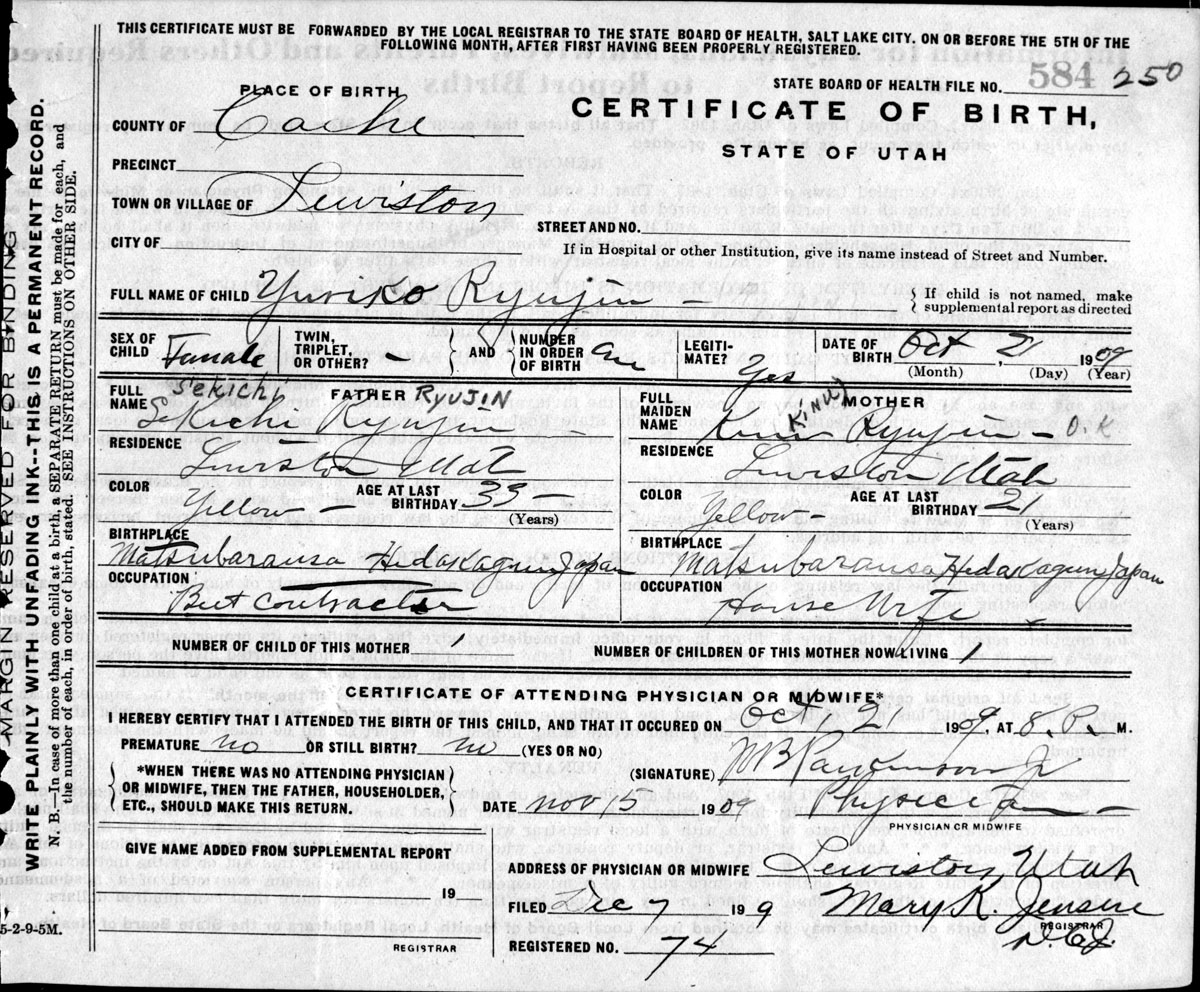 THIS CERTIFICATE MUST BE FORWARDED BY THE LOCAL REGISTRAR TO THE STATE BOARD OF HEALTH, SALT LAKE CITY, ON OR BEFORE THE 5TH OF THE
FOLLOWING MONTH, AFTER FIRST HAVING BEEN PROPERLY REGISTERED.
584 250
STATE BOARD OF HEALTH FILE NO.
PLACE OF BIRTH
CERTIFICATE OF BIRTH,
STATE OF UTAH
COUNTY OF Cache
PRECINCT
TOWN OR VILLAGE OF Lewiston
STREET AND NO.
CITY OF
If in Hospital or other Institution, give its name instead of Street and Number.
FULL NAME OF CHILD Yuriko Ryujin -
If child is not named, make
supplemental report as directed
SEX OF CHILD Famale TWIN, TRIPLET, OR OTHER? - AND NUMBER IN ORDER OF BIRTH LEGITI- MATE? Yes DATE OF BIRTH Oct 2, 1909
(Month) (Day) (Year)
FATHER RYUJIN
Sekichi
FULL NAME Sekichi Ryujin -
RESIDENCE Lewiston Utah
COLOR Yellow - AGE AT LAST BIRTHDAY 33 -
(Years)
BIRTHPLACE Matsubarausa Hidakagun Japan
OCCUPATION Beet Contractor
MOTHER
KINU
FULL MAIDEN NAME Ryujin - O.K
RESIDENCE Lewiston Utah
COLOR Yellow - AGE AT LAST BIRTHDAY 21
(Years)
BIRTHPLACE Matsubarausa Hidakagun Japan
OCCUPATION House Wife
NUMBER OF CHILD OF THIS MOTHER 1 NUMBER OF CHILDREN OF THIS MOTHER NOW LIVING 1
CERTIFICATE OF ATTENDING PHYSICIAN OR MIDWIFE*
I HEREBY CERTIFY THAT I ATTENDED THE BIRTH OF THIS CHILD, AND THAT IT OCCURED OF Oct 2 1909, AT 8. P. M.
PREMATURE no OR STILL BIRTH? no (YES OR NO)
*WHEN THERE WAS NO ATTENDING PHYSICIAN
OR MIDWIFE, THEN THE FATHER, HOUSEHOLDER,
ETC., SHOULD MAKE THIS RETURN.
(SIGNATURE) Jr
DATE Nov 15 1909 Physician -
PHYSICIAN OR MIDWIFE
GIVE NAME ADDED FROM SUPPLEMENTAL REPORT
19
REGISTRAR
ADDRESS OF PHYSICIAN OR MIDWIFE Lewiston, Utah
FILED Dec 7 19 9 Mary R. Jensen
REGISTRAR
REGISTERED NO. 74
MARGIN RESERVED FOR BINDING
WRITE PLAINLY WITH UNFADING INK--THIS IS A PERMANENT RECORD.
N. B.--In case of more than one child at a birth, a SEPARATE RETURN must be made for each, and
the number of each, in order of birth, stated. SEE INSTRUCTIONS ON OTHER SIDE.
5-2-9-5M.